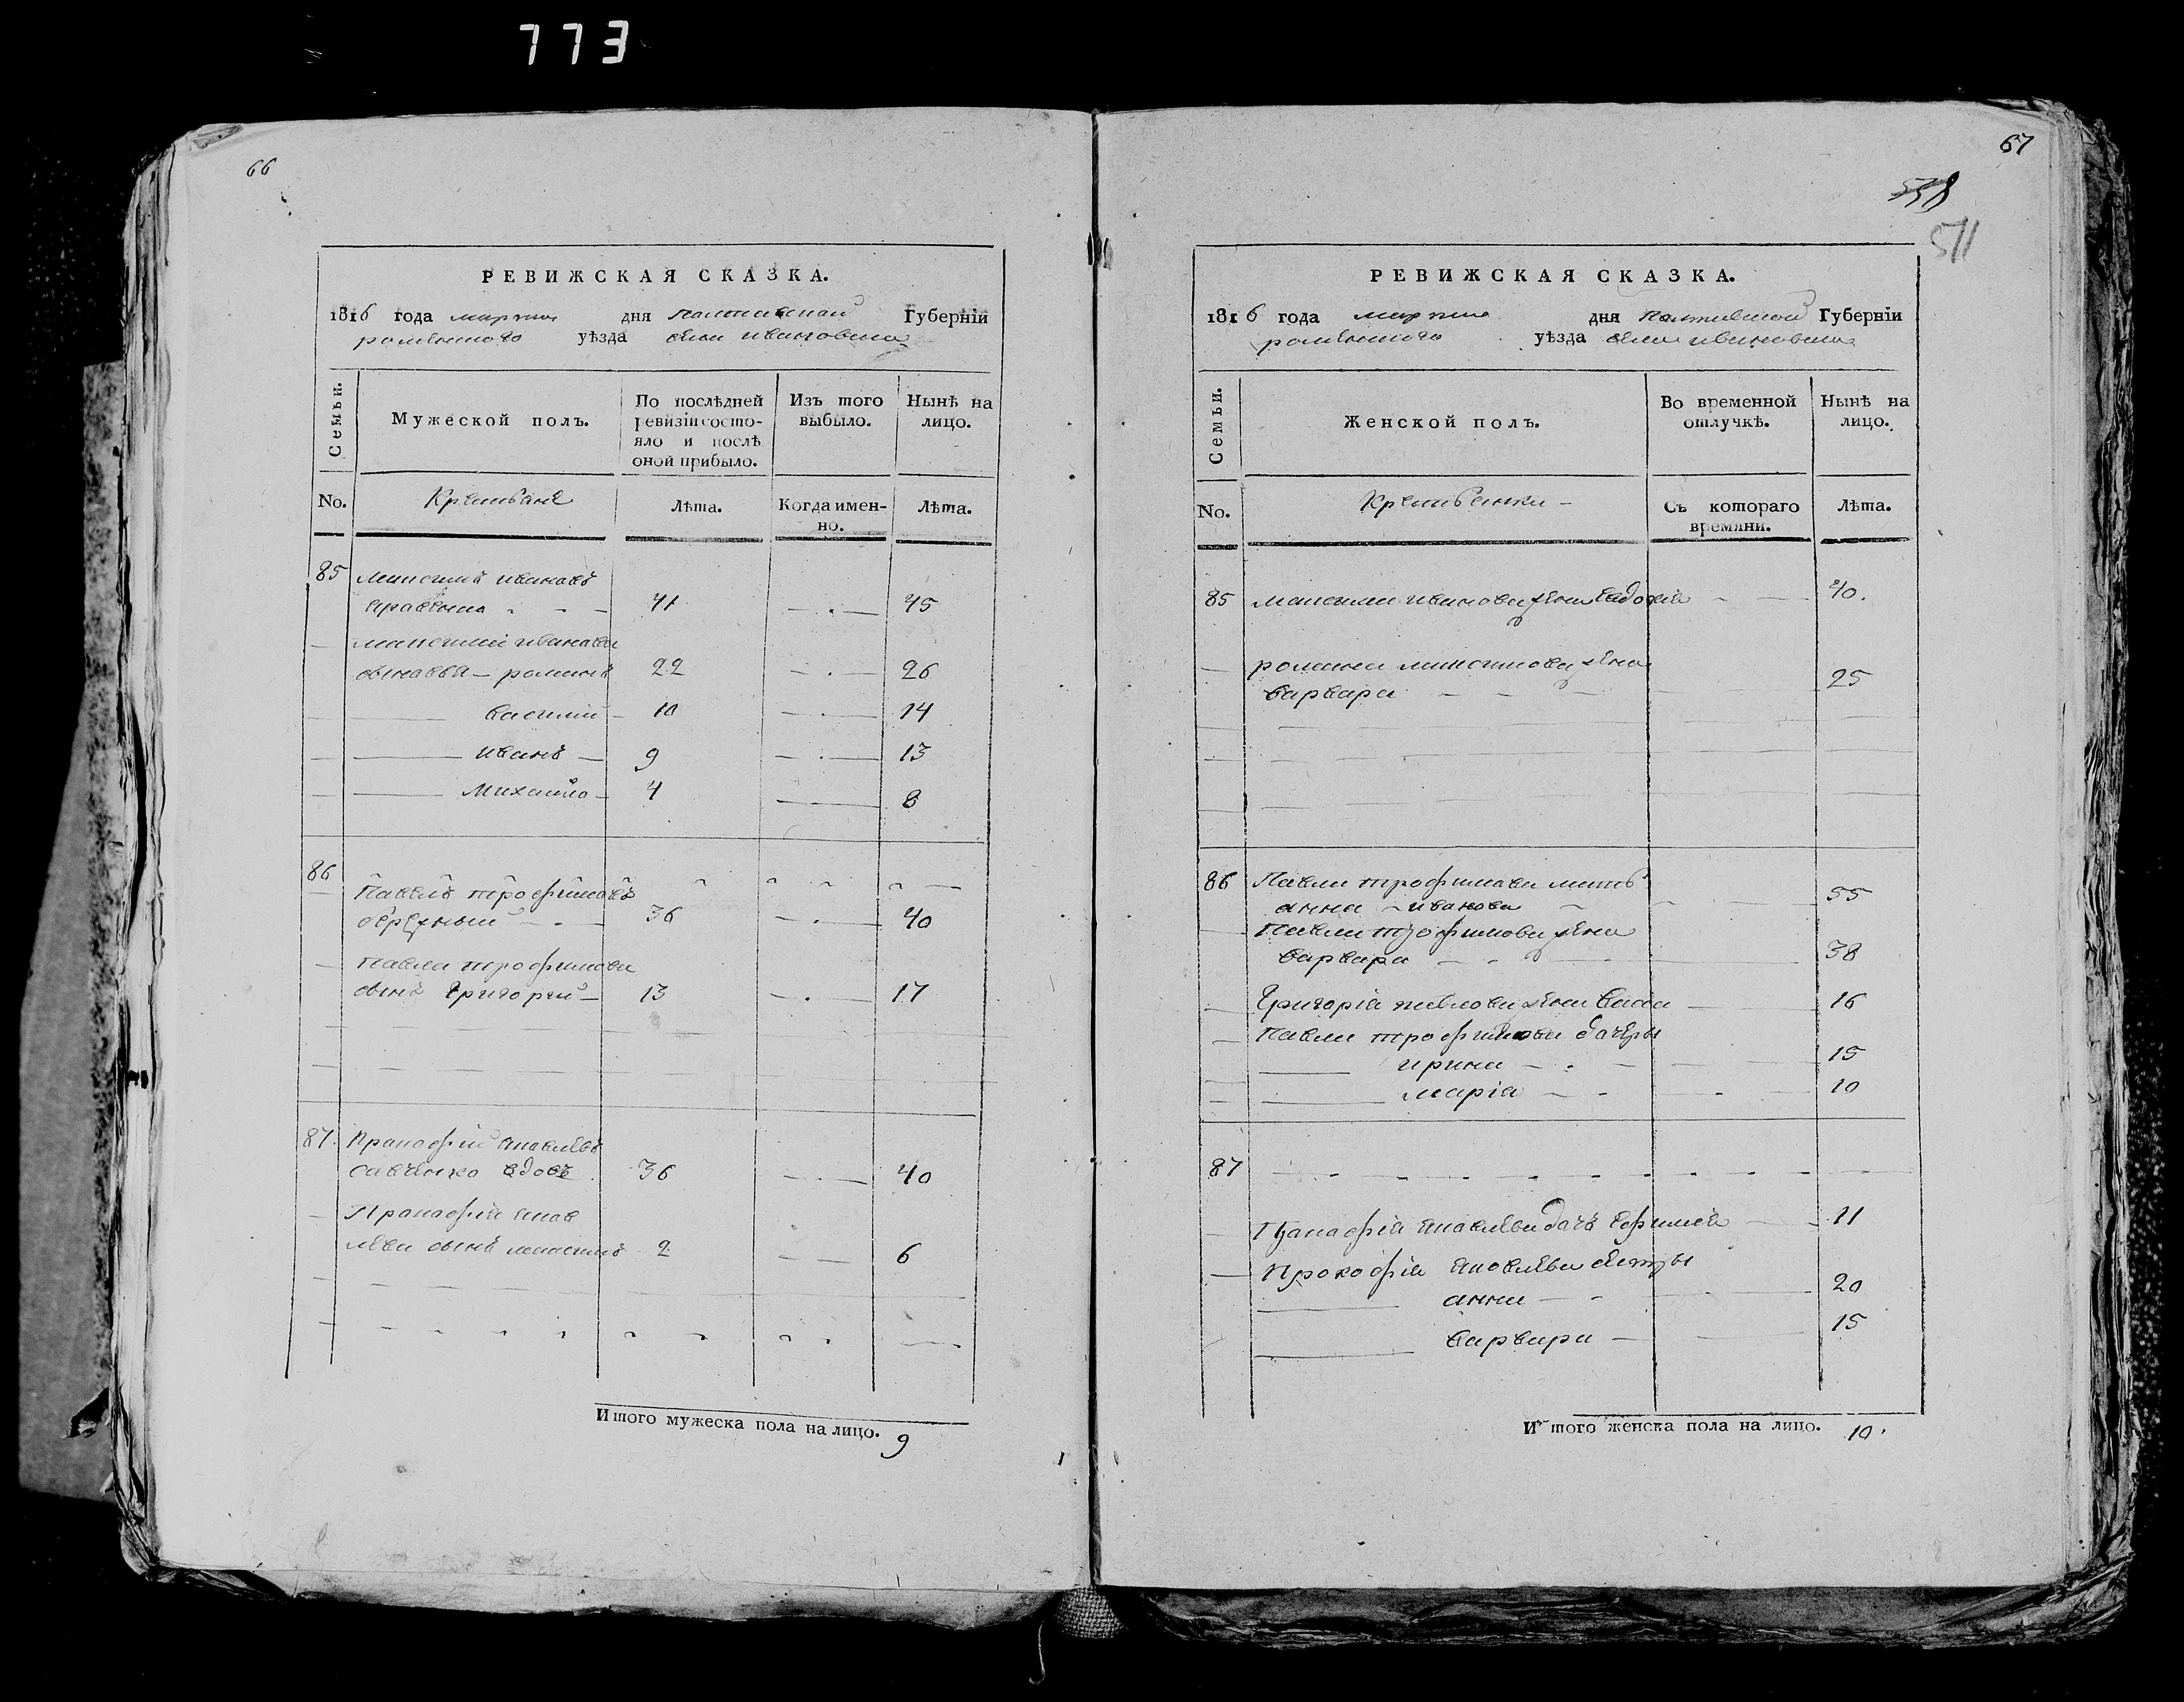 773
66
РЕВИЖСКАЯ СКАЗКА.
1816 года марта дня полтавской Губернїи
роменского уѣзда села ивановска
Семьи.
Мужеской полъ.
По послѣдней ревизїи состояло и послѣ оной прибыло.
Изъ того выбыло.
Нынѣ на лицо.
No. Крестьяне Лѣта. Когда именно. Лѣта.
85 максимъ ивановъ
41 45
максима иванова
сыновья романъ 22 26
василий 10 14
иванъ 9 13
Михайло 4 8
86
Павелъ трофимовъ
36 40
Павла трофимова
сынъ Григорий 13 17
87. Пракофий яковлевъ
савченко вдовъ 36 40
Пракофия яков
лева сынъ максимъ 2 6
Итого мужеска пола на лицо. 9
67
538
511
РЕВИЖСКАЯ СКАЗКА.
1816 года марта дня полтавской Губернїи
роменского уѣзда села ивановска
Семьи.
Женской полъ.
Во временной отлучкѣ.
Нынѣ на лицо.
No. Крестьянки Съ котораго времяни. Лѣта.
85 максима иванова жена евдокия 40.
романа максимова жена
варвара 25
86 Павла трофимова мать
анна иванова 55
Павла трофимова жена
варвара 38
Григорія павлова жена васса 16
Павла трофимова дочеры
ирина 15
марія 10
87
Пракофія яковлева дочъ ефимія 11
Прокофія яковлева сестры
анна 20
варвара 15
Итого женска пола на лицо. 10.